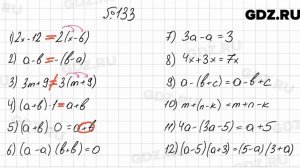 GDZ.RU
№133
1) 2x-12 = 2(x-6)
2) a-b = -(b-a)
3) 3m+9 ≠ 3(m+9)
4) (a+b)·1 = a+b
5) (a+b)·0 = a+b
6) (a-a)(b+b)=0
7) 3a-a = 3
8) 4x+3x = 7x
9) a-(b+c) = a-b+c
10) m+(n-k) = m+n-k
11) 4a-(3a-5) = a+5
12) (a-5)(a+3) = (5-a)(3+a)
GDZ.RU